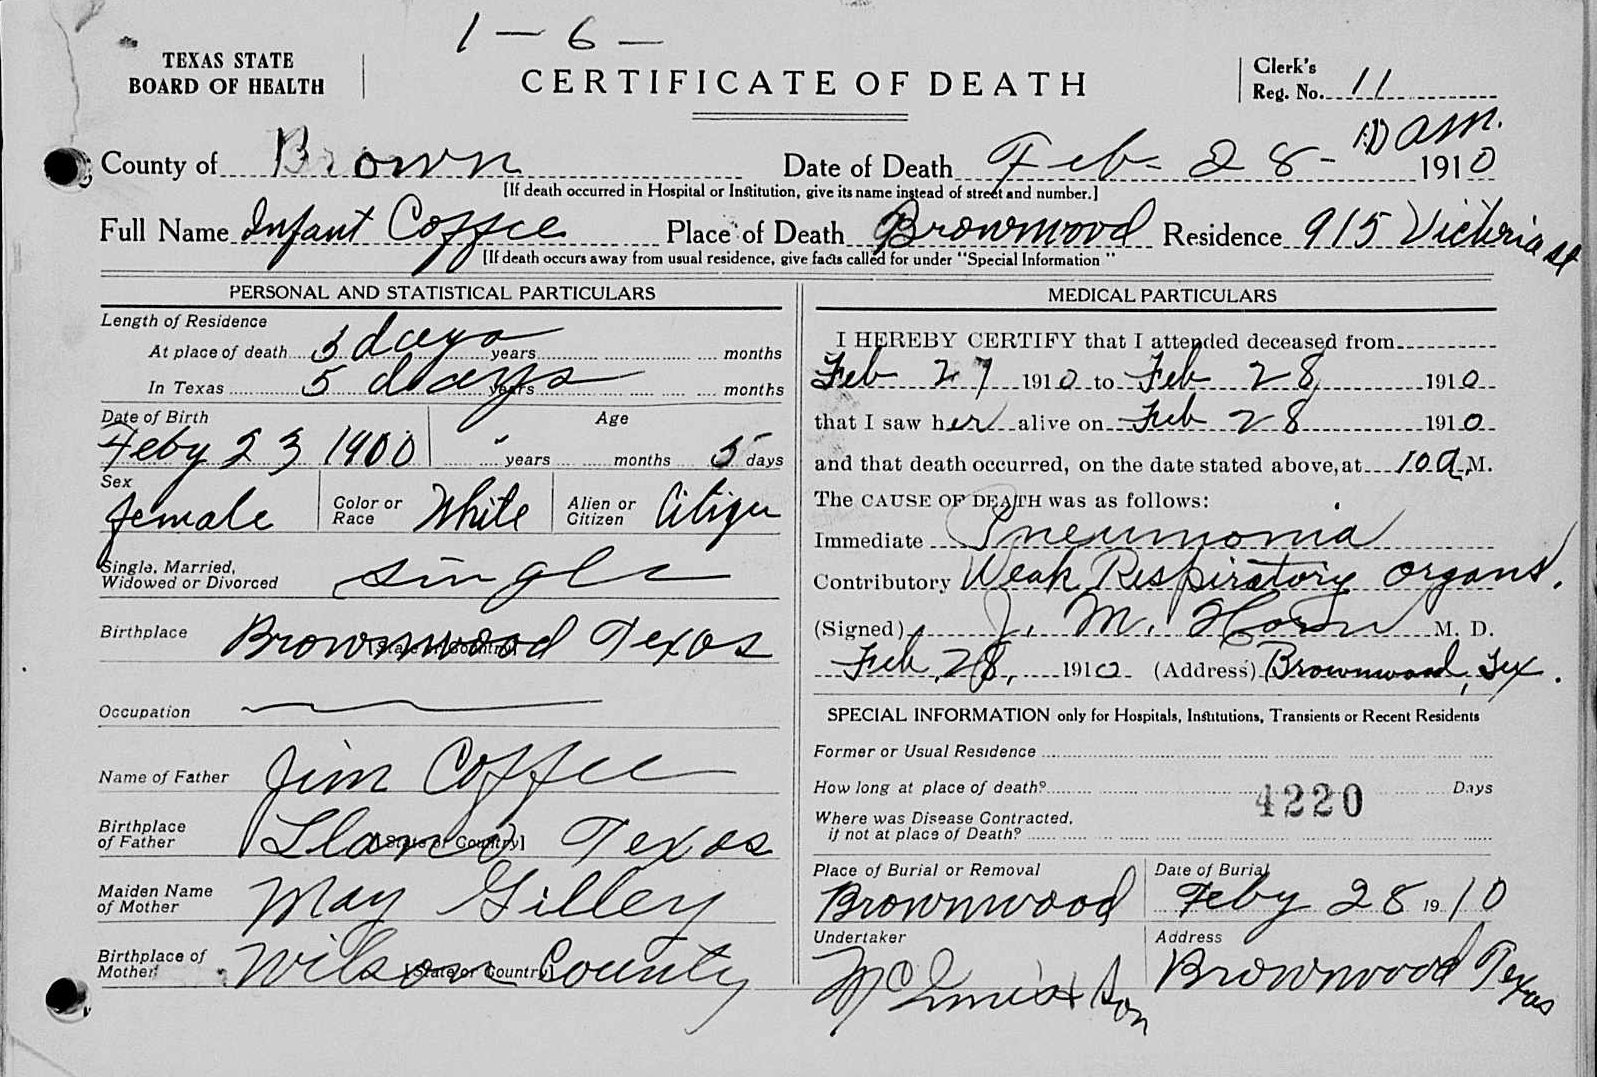 1 – 6 –
TEXAS STATE
BOARD OF HEALTH
CERTIFICATE OF DEATH
Clerk's
Reg. No. 11
County of Brown Date of Death Feb - 28 - 10 am. 1910
[If death occurred in Hospital or Institution, give its name instead of street and number.]
Full Name Infant Coffee Place of Death Brownwood Residence 915 Victoria st
[If death occurs away from usual residence, give facts called for under "Special Information"
PERSONAL AND STATISTICAL PARTICULARS
Length of Residence
At place of death 5 days years months
In Texas 5 days years months
Date of Birth Age
Feby 23 1900 " years months 5 days
Sex female Color or Race White Alien or Citizen Citizen
Single, Married,
Widowed or Divorced single
Birthplace Brownwood Texas
[State or Country]
Occupation
Name of Father Jim Coffee
Birthplace
of Father Llano Texas
[State or Country]
Maiden Name
of Mother May Gilley
Birthplace of
Mother Wilson County
[State or Country]
MEDICAL PARTICULARS
I HEREBY CERTIFY that I attended deceased from
Feb 27 1910 to Feb 28 1910
that I saw her alive on Feb 28 1910
and that death occurred, on the date stated above, at 10 a M.
The CAUSE OF DEATH was as follows:
Immediate Pneumonia
Contributory Weak Respiratory organs.
(Signed) J. M. Horn M. D.
Feb, 28, 1910 (Address) Brownwood, Tex.
SPECIAL INFORMATION only for Hospitals, Institutions, Transients or Recent Residents
Former or Usual Residence
How long at place of death? Days
4220
Where was Disease Contracted,
if not at place of Death?
Place of Burial or Removal Date of Burial
Brownwood Feby 28 1910
Undertaker Address
& Son Brownwood Texas